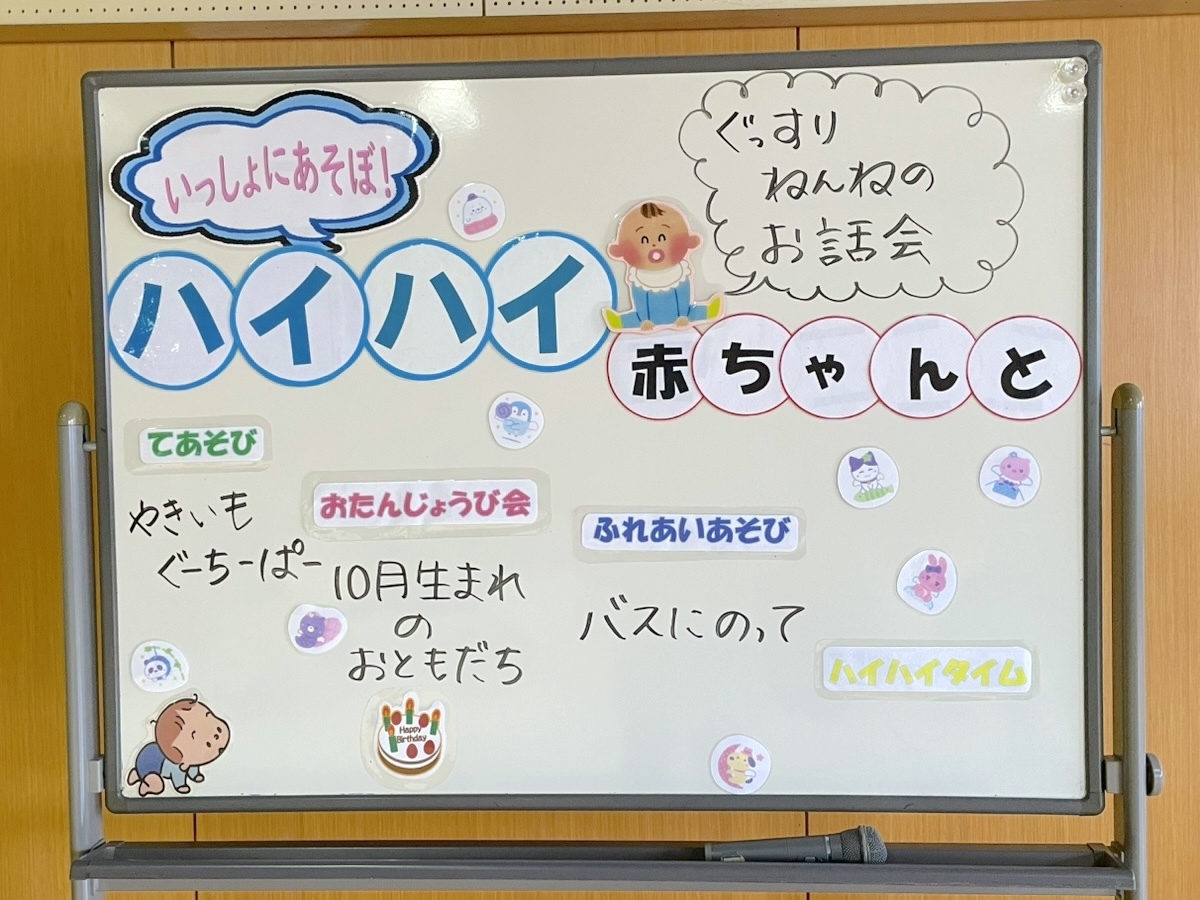 いっしょにあそぼ!
ぐっすり
ねんねの
お話会
ハイハイ
赤ちゃんと
てあそび
やきいも
ぐーちーぱー
おたんじょうび会
10月生まれ
の
おともだち
Happy
Birthday
ふれあいあそび
バスにのって
ハイハイタイム